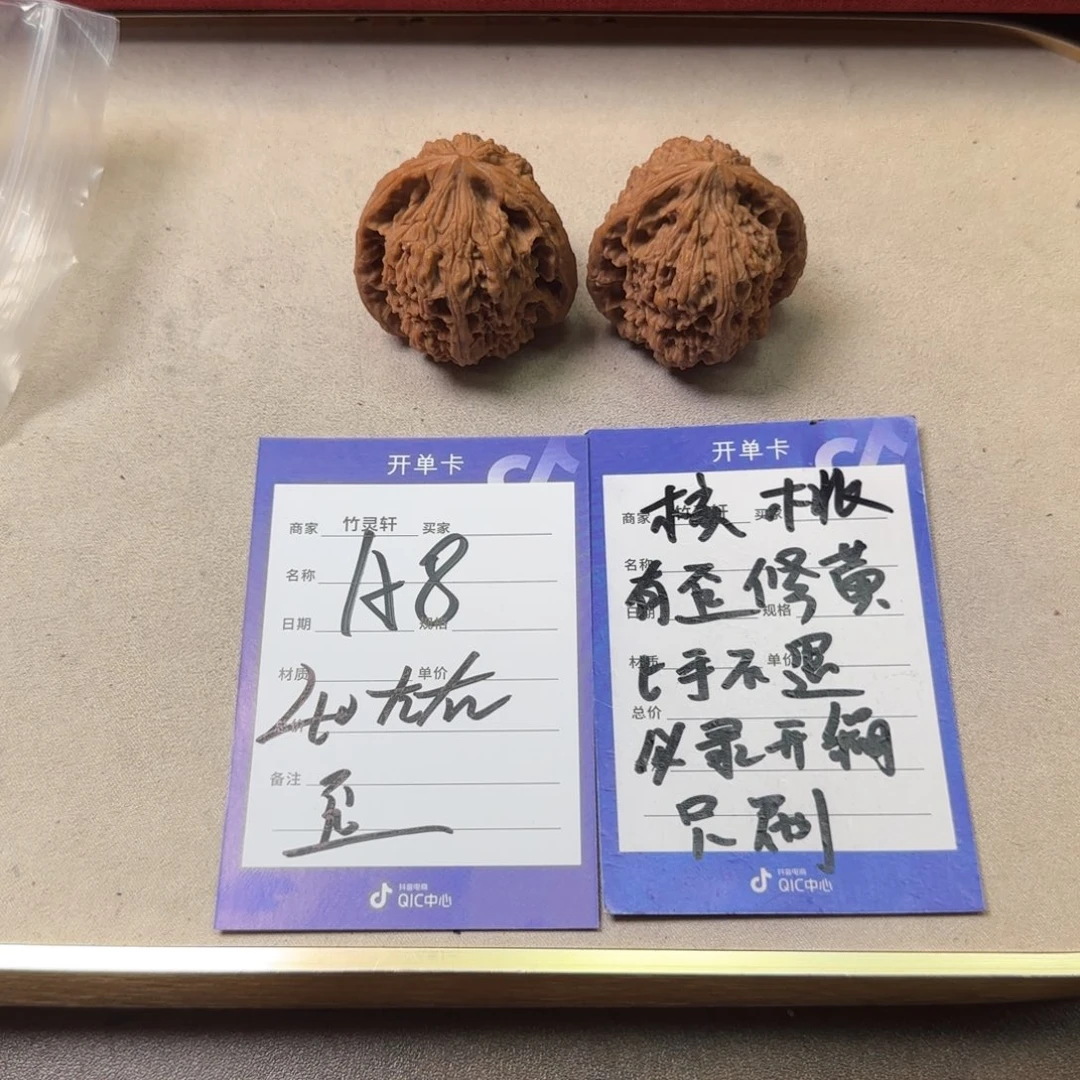 开单卡
商家 竹灵轩 买家
A8
名称
日期 规格
材质 单价
备注
歪
抖音电商
QIC中心
开单卡
商家 竹灵轩 买家
核桃
名称
有歪修黄
日期 规格
材质 单价
上手不退
总价
必录开箱
只刷
抖音电商
QIC中心